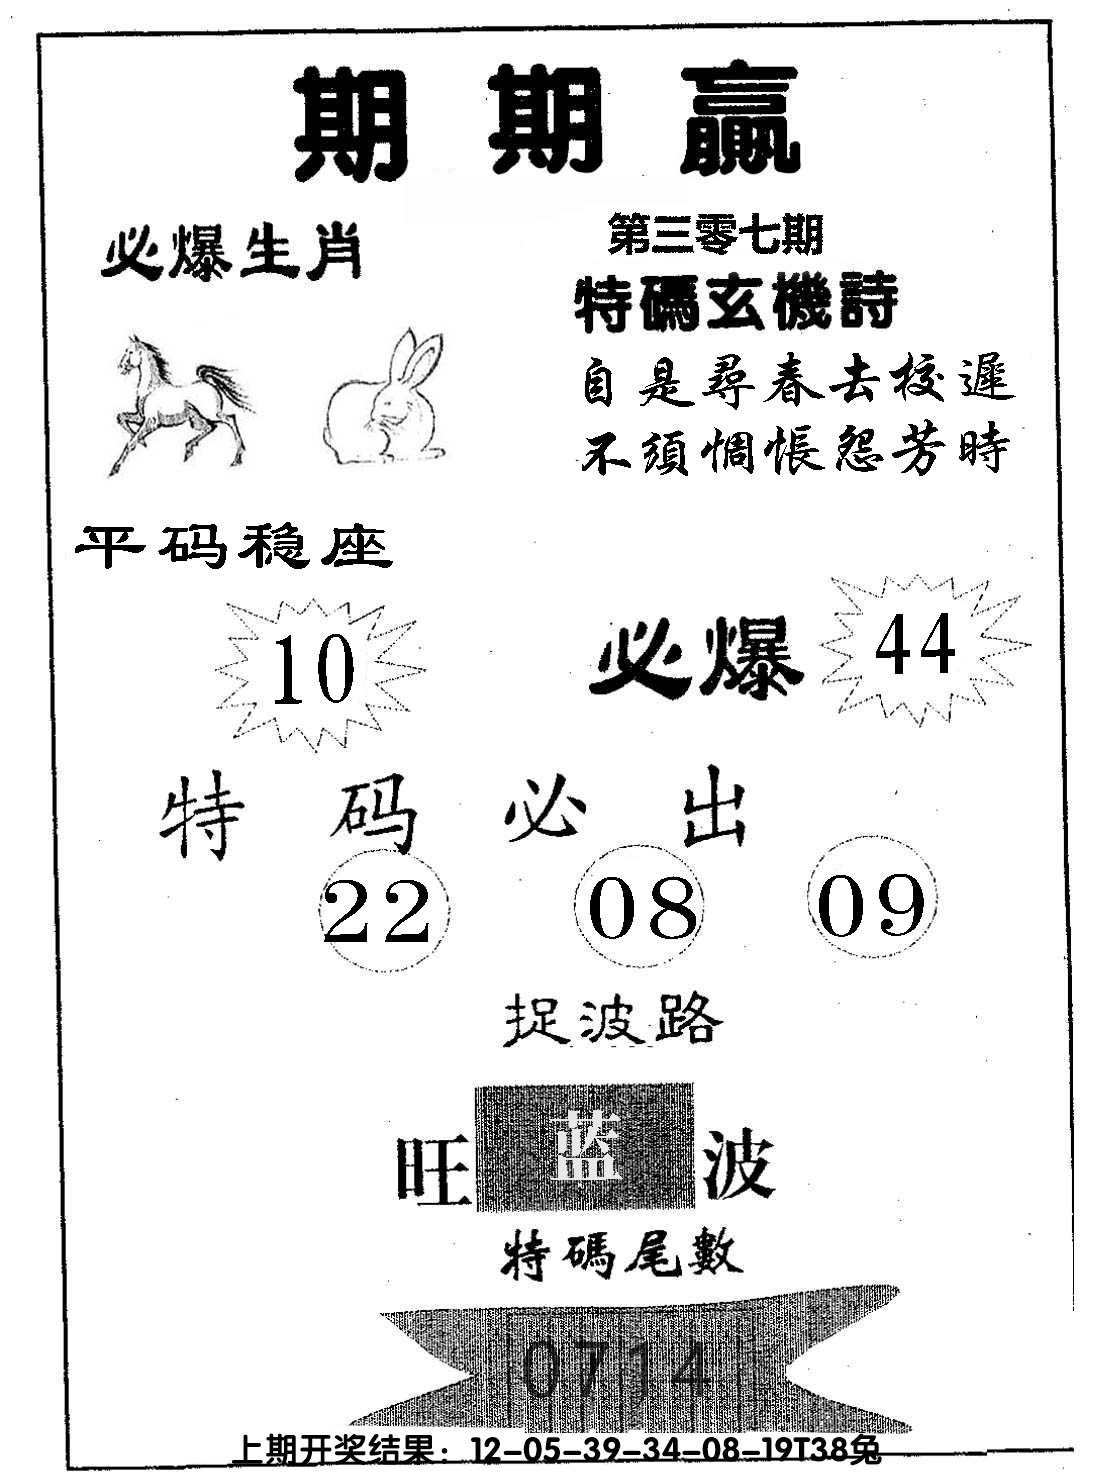 期期赢
必爆生肖
第三零七期
特碼玄機詩
自是尋春去校遲
不須惆悵怨芳時
平码稳座
10
必爆
44
特码必出
22 08 09
捉波路
旺蓝波
特碼尾數
0714
上期开奖结果：12-05-39-34-08-19T38兔